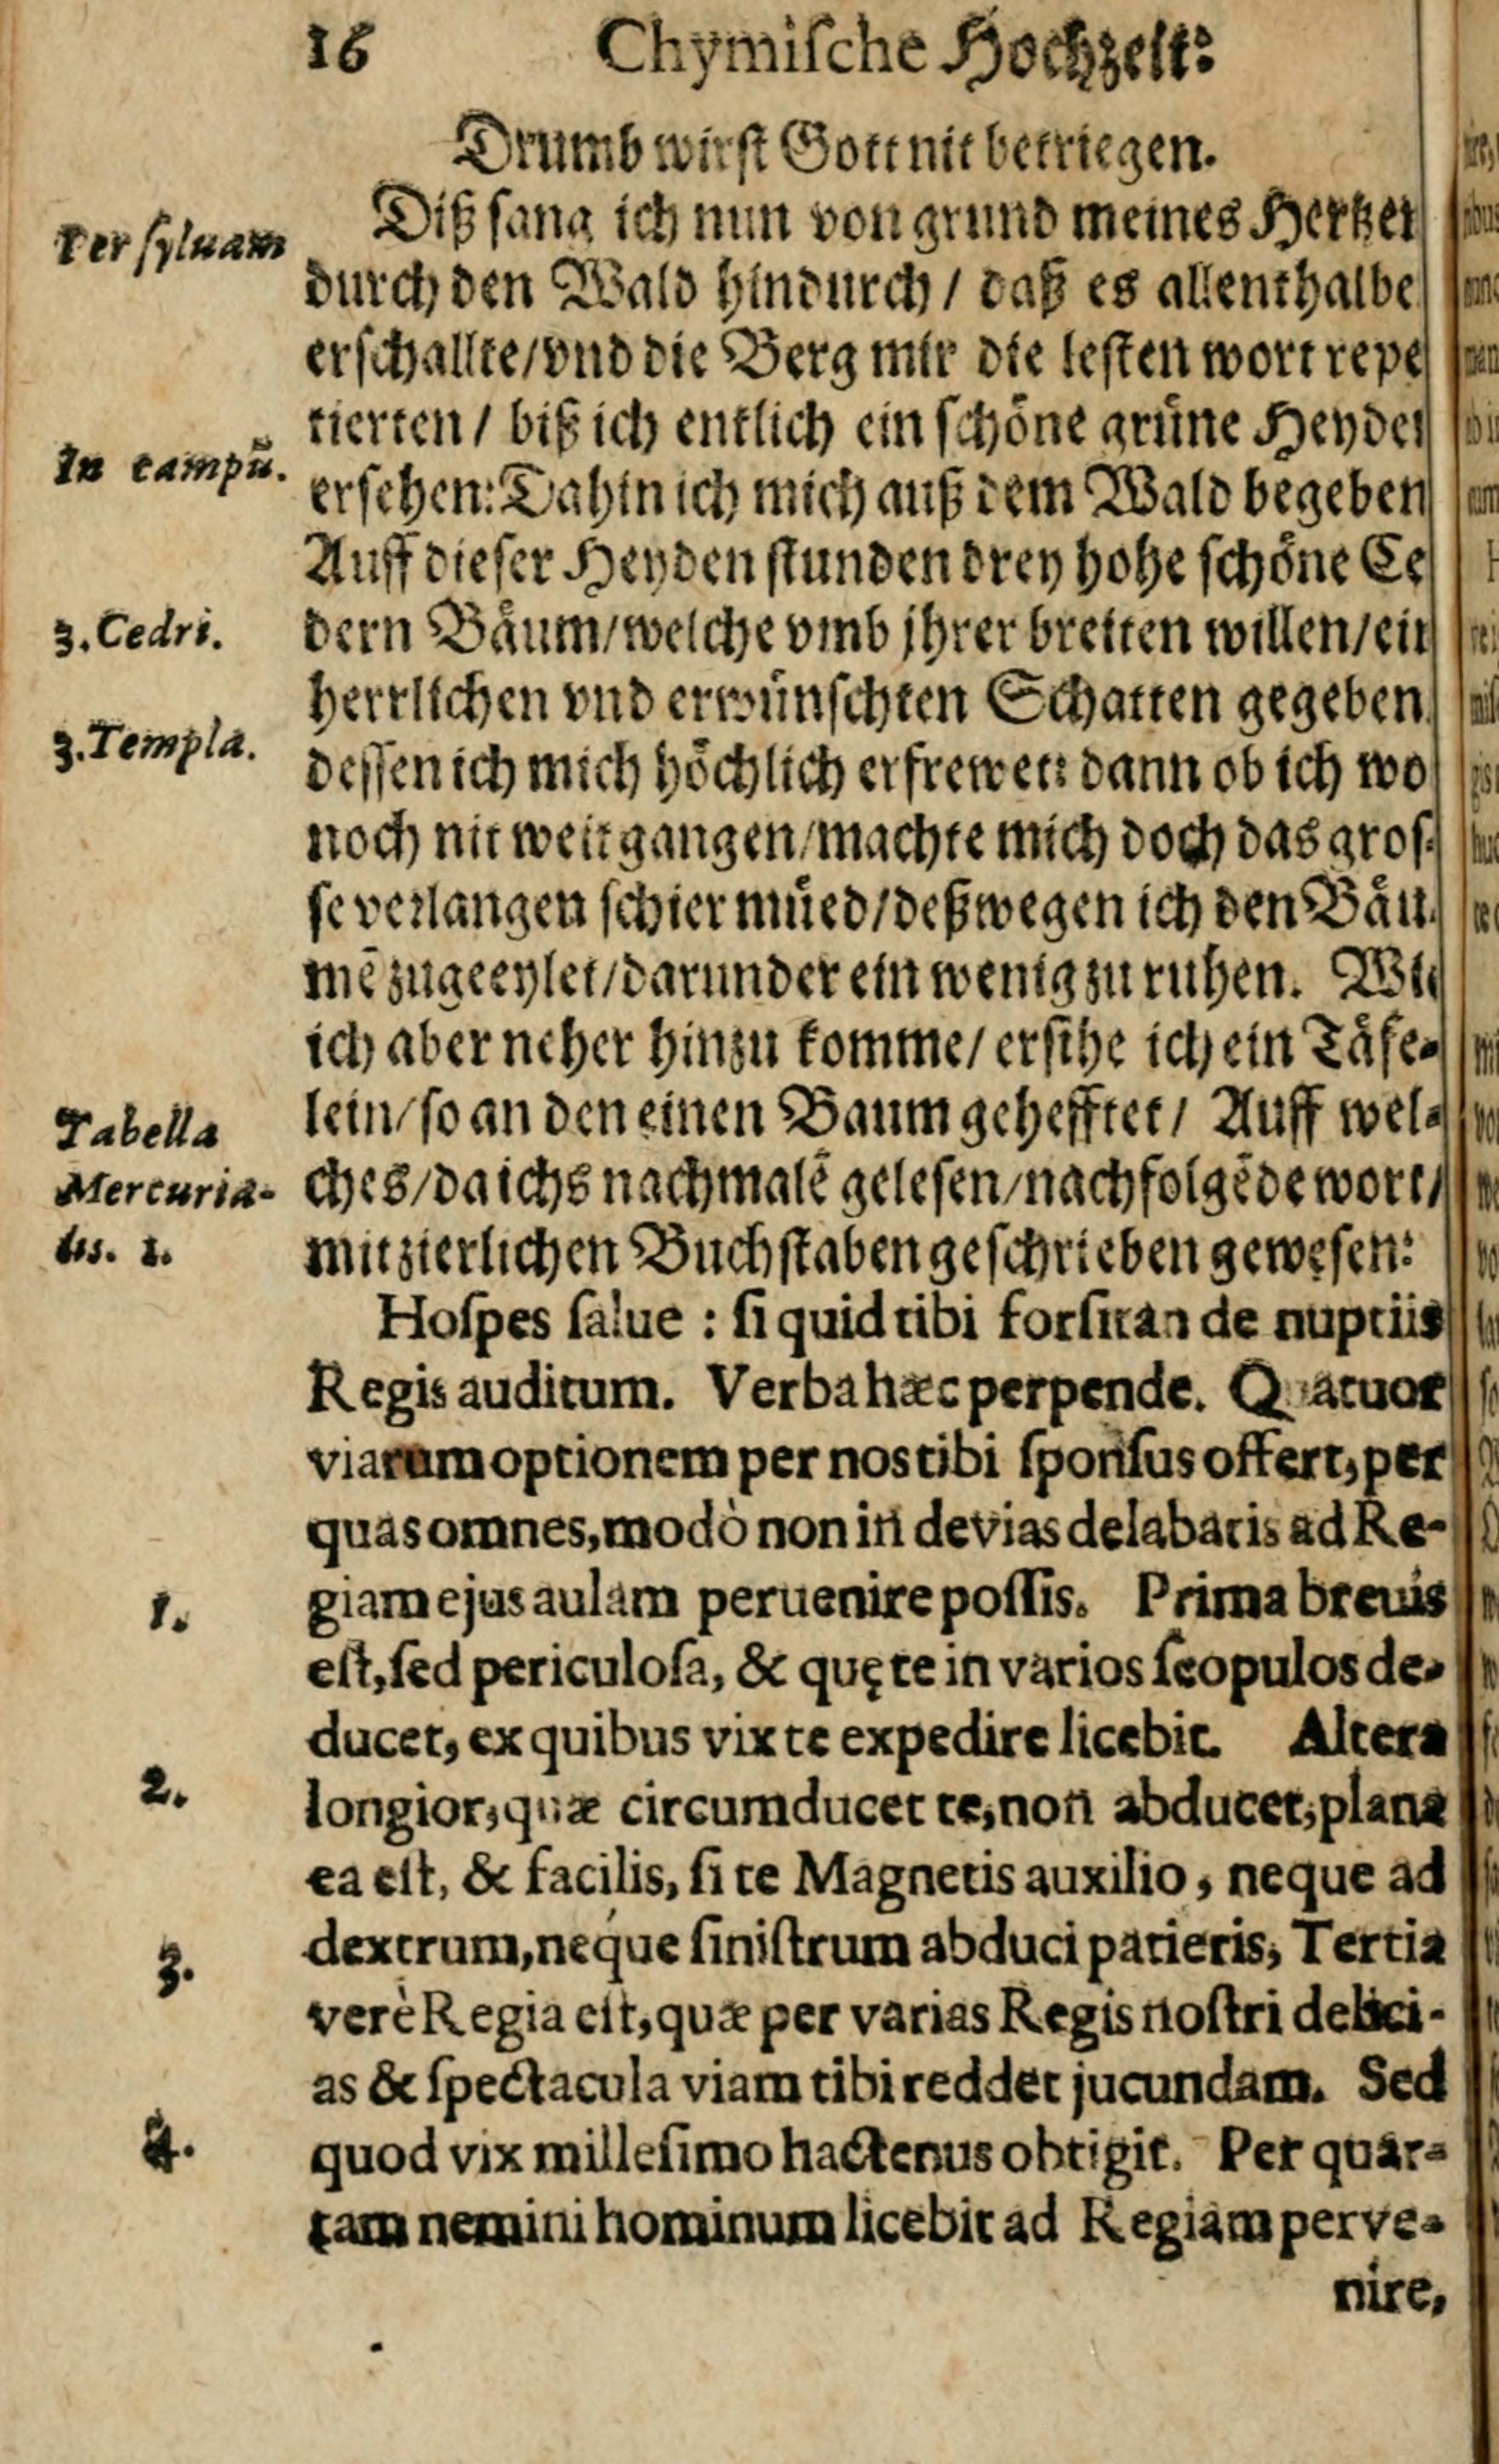 16 Chymiſche Hochzeit:
Drumb wirſt Gott nit betriegen.
Per ſyluam
Diß ſang ich nun von grund meines Hertzen
durch den Wald hindurch / daß es allenthalbe
erſchallte/vnd die Berg mir die leſten wort repe
tierten / biß ich entlich ein ſchöne grüne Heyden
In campũ.
erſehen: Dahin ich mich auß dem Wald begeben
Auff dieſer Heyden ſtunden drey hohe ſchöne Ce
3. Cedri.
dern Bäum/welche vmb jhrer breiten willen/ein
herrlichen vnd erwünſchten Schatten gegeben
3. Templa.
deſſen ich mich höchlich erfrewet: dann ob ich wo
noch nit weit gangen/machte mich doch das groſ-
ſe verlangen ſchier müed/deßwegen ich den Bäu-
mē zugeeylet/darunder ein wenig zu ruhen. Wie
ich aber neher hinzu komme/ erſihe ich ein Täfe-
Tabella
Mercuria-
lis. 1.
lein/ſo an den einen Baum gehefftet/ Auff wel-
ches/da ichs nachmalē geleſen/nachfolgēde wort/
mit zierlichen Buchſtaben geſchrieben geweſen:
Hoſpes ſalue : ſi quid tibi forſitan de nuptiis
Regis auditum. Verba hæc perpende. Quatuor
viarum optionem per nos tibi ſponſus offert, per
quas omnes, modò non in devias delabaris ad Re-
1.
giam ejus aulam peruenire poſſis. Prima breuis
eſt, ſed periculoſa, & quę te in varios ſcopulos de-
ducet, ex quibus vix te expedire licebit. Altera
2.
longior, quæ circumducet te, non abducet, plana
ea eſt, & facilis, ſi te Magnetis auxilio, neque ad
dextrum, neque ſiniſtrum abduci patieris, Tertia
3.
verè Regia eſt, quæ per varias Regis noſtri delici-
as & ſpectacula viam tibi reddet jucundam. Sed
4.
quod vix milleſimo hactenus obtigit. Per quar-
tam nemini hominum licebit ad Regiam perve-
nire,